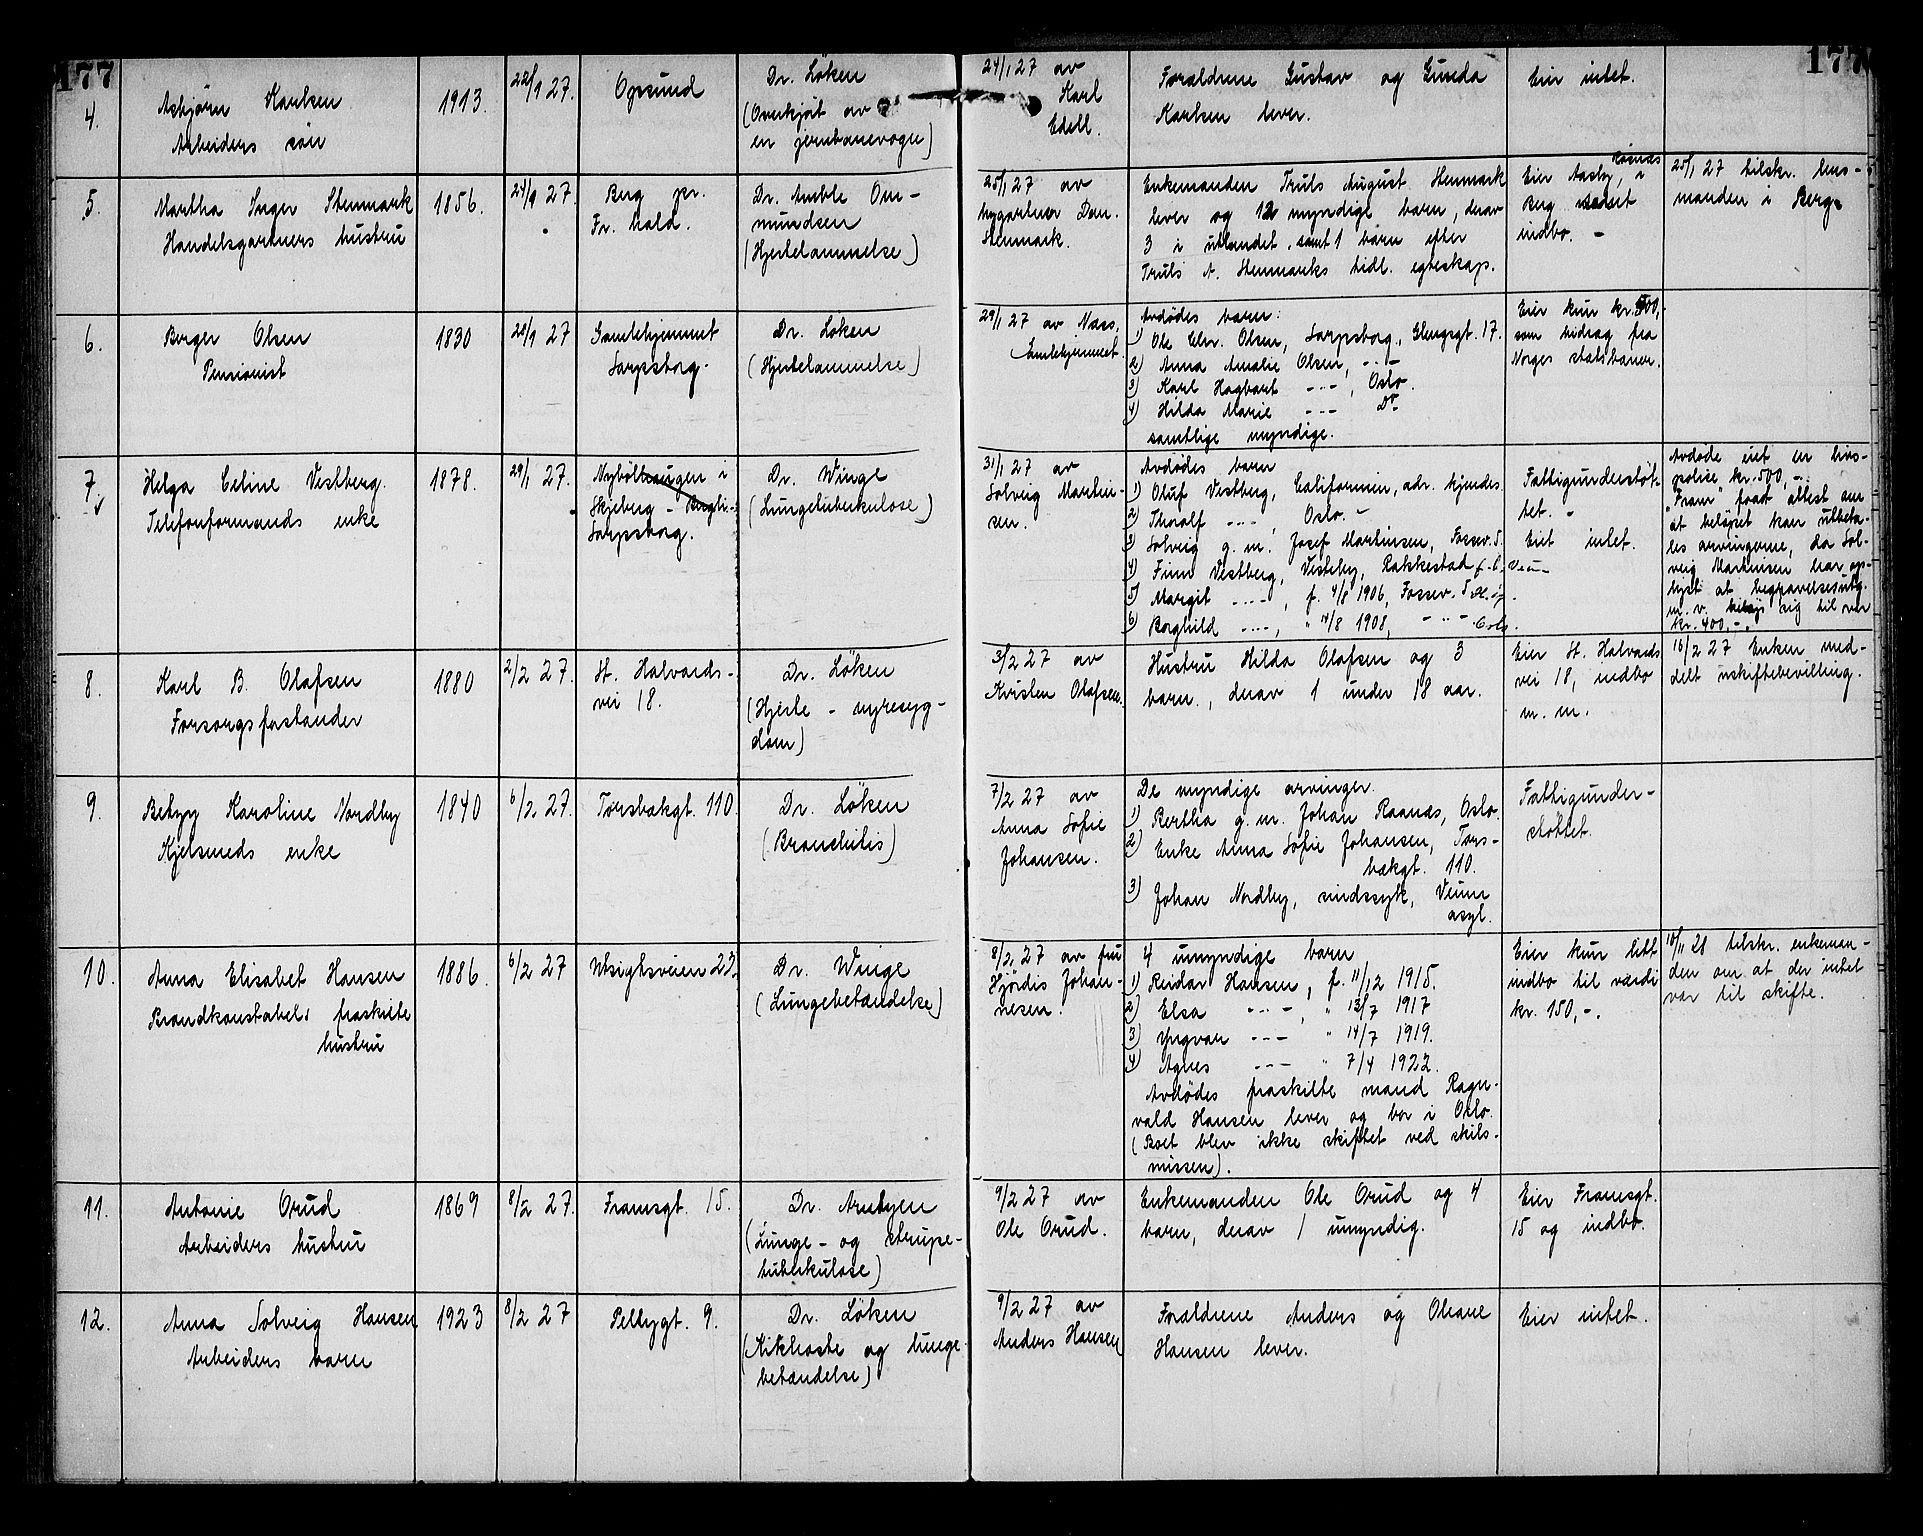 177
177
4.
Asbjörn Karlsen
Arbeiders sön
1913.
22/1 27.
Opsund
Dr. Löken
(Overkjöt av
en jernbanevogn)
24/1 27 av
Karl
Edell.
Forældrene Gustav og Gunda
Karlsen lever.
Eier intet.
5.
Martha Inger Stenmark
Handelsgartners hustru
1856.
24/1 27.
Berg pr.
Fr. hald.
Dr. Amble Om-
mundsen
(Hjertelammelse)
25/1 27 av
Stenmark.
Enkemanden Truls August Stenmark
lever og 12 myndige barn, derav
3 i utlandet, samt 1 barn efter
Truls A. Stenmarks tidl. egteskap.
Eier Aasby, i
Berg samt
indbo. -
25/1 27 tilskr. lens-
manden i Berg.
6.
Berger Olsen
Pensionist
1830
28/1 27
Gamlehjemmet
Sarpsborg.
Dr. Löken
(Hjertelammelse)
29/1 27 av Næss,
Gamlehjemmet.
Avdödes barn:
1) Ole Chr. Olsen, Sarpsborg, Glengsgt. 17.
2) Anna Amalie Olsen, -"-
3) Karl Hagbart -"-, Oslo.
4) Hilda Marie -"- Do
samtlige myndige.
Eier kun kr. 500,
som bidrag fra
Norges statsbaner.
7.
Helga Celine Vestberg.
Telefonformands enke
1878.
29/1 27.
Skjeberg
Sarpsborg.
Dr. Winge
(Lungetuberkulose)
31/1 27 av
Solveig Martin-
sen.
Avdödes barn
1) Oluf Vestberg, Californien, adr. kjendes
2) Thoralf -"-, Oslo. -
3) Solveig g. m. Josef Martinsen, Fossev. 5.
4) Finn Vestberg, Vesteby, Rakkestad
5) Margit -"-, f. 4/8 1906, Fossev. 5
6) Borghild -"-, " 14/8 1908, -"- Oslo.
Fattigunderstöt-
tet. -
Eiet intet.
Avdöde eiet en livs-
polise kr. 500,-
"Fram" faat attest om
at belöpet kan utbeta-
les arvingerne, da Sol-
veig Martinsen har op-
lyst at begravelsesutg.
m. v. belöp sig til over
kr. 400,-.
8.
Karl B. Olafsen
Forsorgsforstander
1880
2/2 27.
St. Halvards-
vei 18.
Dr. Löken
(Hjerte - nyresyg-
dom)
3/2 27 av
Kristen Olafsen.
Hustru Hilda Olafsen og 3
barn, derav 1 under 18 aar.
Eier St. Halvards
vei 18, indbo
m. m.
16/2 27 Enken med-
delt uskiftebevilling.
9.
Betzy Karoline Nordby
Gjelsmeds enke
1840
6/2 27.
Torsbakgt. 110
Dr. Löken
(Bronchitis)
7/2 27 av
Anna Sofie
Johansen.
De myndige arvinger.
1) Bertha g. m. Johan Raanæs, Oslo.
2) Enke Anna Sofie Johansen, Tors-
bakgt. 110.
3) Johan Nordby, sindssyk, Veum
asyl.
Fattigunder-
stöttet.
10.
Anna Elisabet Hansen
Brandkonstabels fraskilte
hustru
1886.
6/2 27
Utsigtsveien 23.
Dr. Winge
(Lungebetændelse)
8/2 27 av fru
Hjördis Johan-
nesen.
4 umyndige barn
1) Reidar Hansen, f. 11/12 1915.
2) Elsa -"-, " 13/7 1917
3) Yngvar -"- " 14/7 1919.
4) Agnes -"- " 7/4 1922.
Avdödes fraskilte mand Ragn-
vald Hansen lever og bor i Oslo.
(Boet blev ikke skiftet ved skils-
missen).
Eier kun litt
indbo til værdi
kr. 150,-.
18/11 28 tilskr. enkeman-
den om at der intet
var til skifte.
11.
Antonie Orud
Arbeiders hustru
1869
8/2 27.
Framsgt. 15.
Dr. Arntzen
(Lunge- og strupe-
tuberkulose)
9/2 27 av
Ole Orud.
Enkemanden Ole Orud og 4
barn, derav 1 umyndig.
Eier Framsgt.
15 og indbo.
12.
Anna Solveig Hansen
Arbeiders barn
1923
8/2 27
Pellygt. 9.
Dr. Löken
(Kikhoste og lunge-
betændelse)
9/2 27 av
Anders Hansen
Forældrene Anders og Oleane
Hansen lever.
Eier intet.